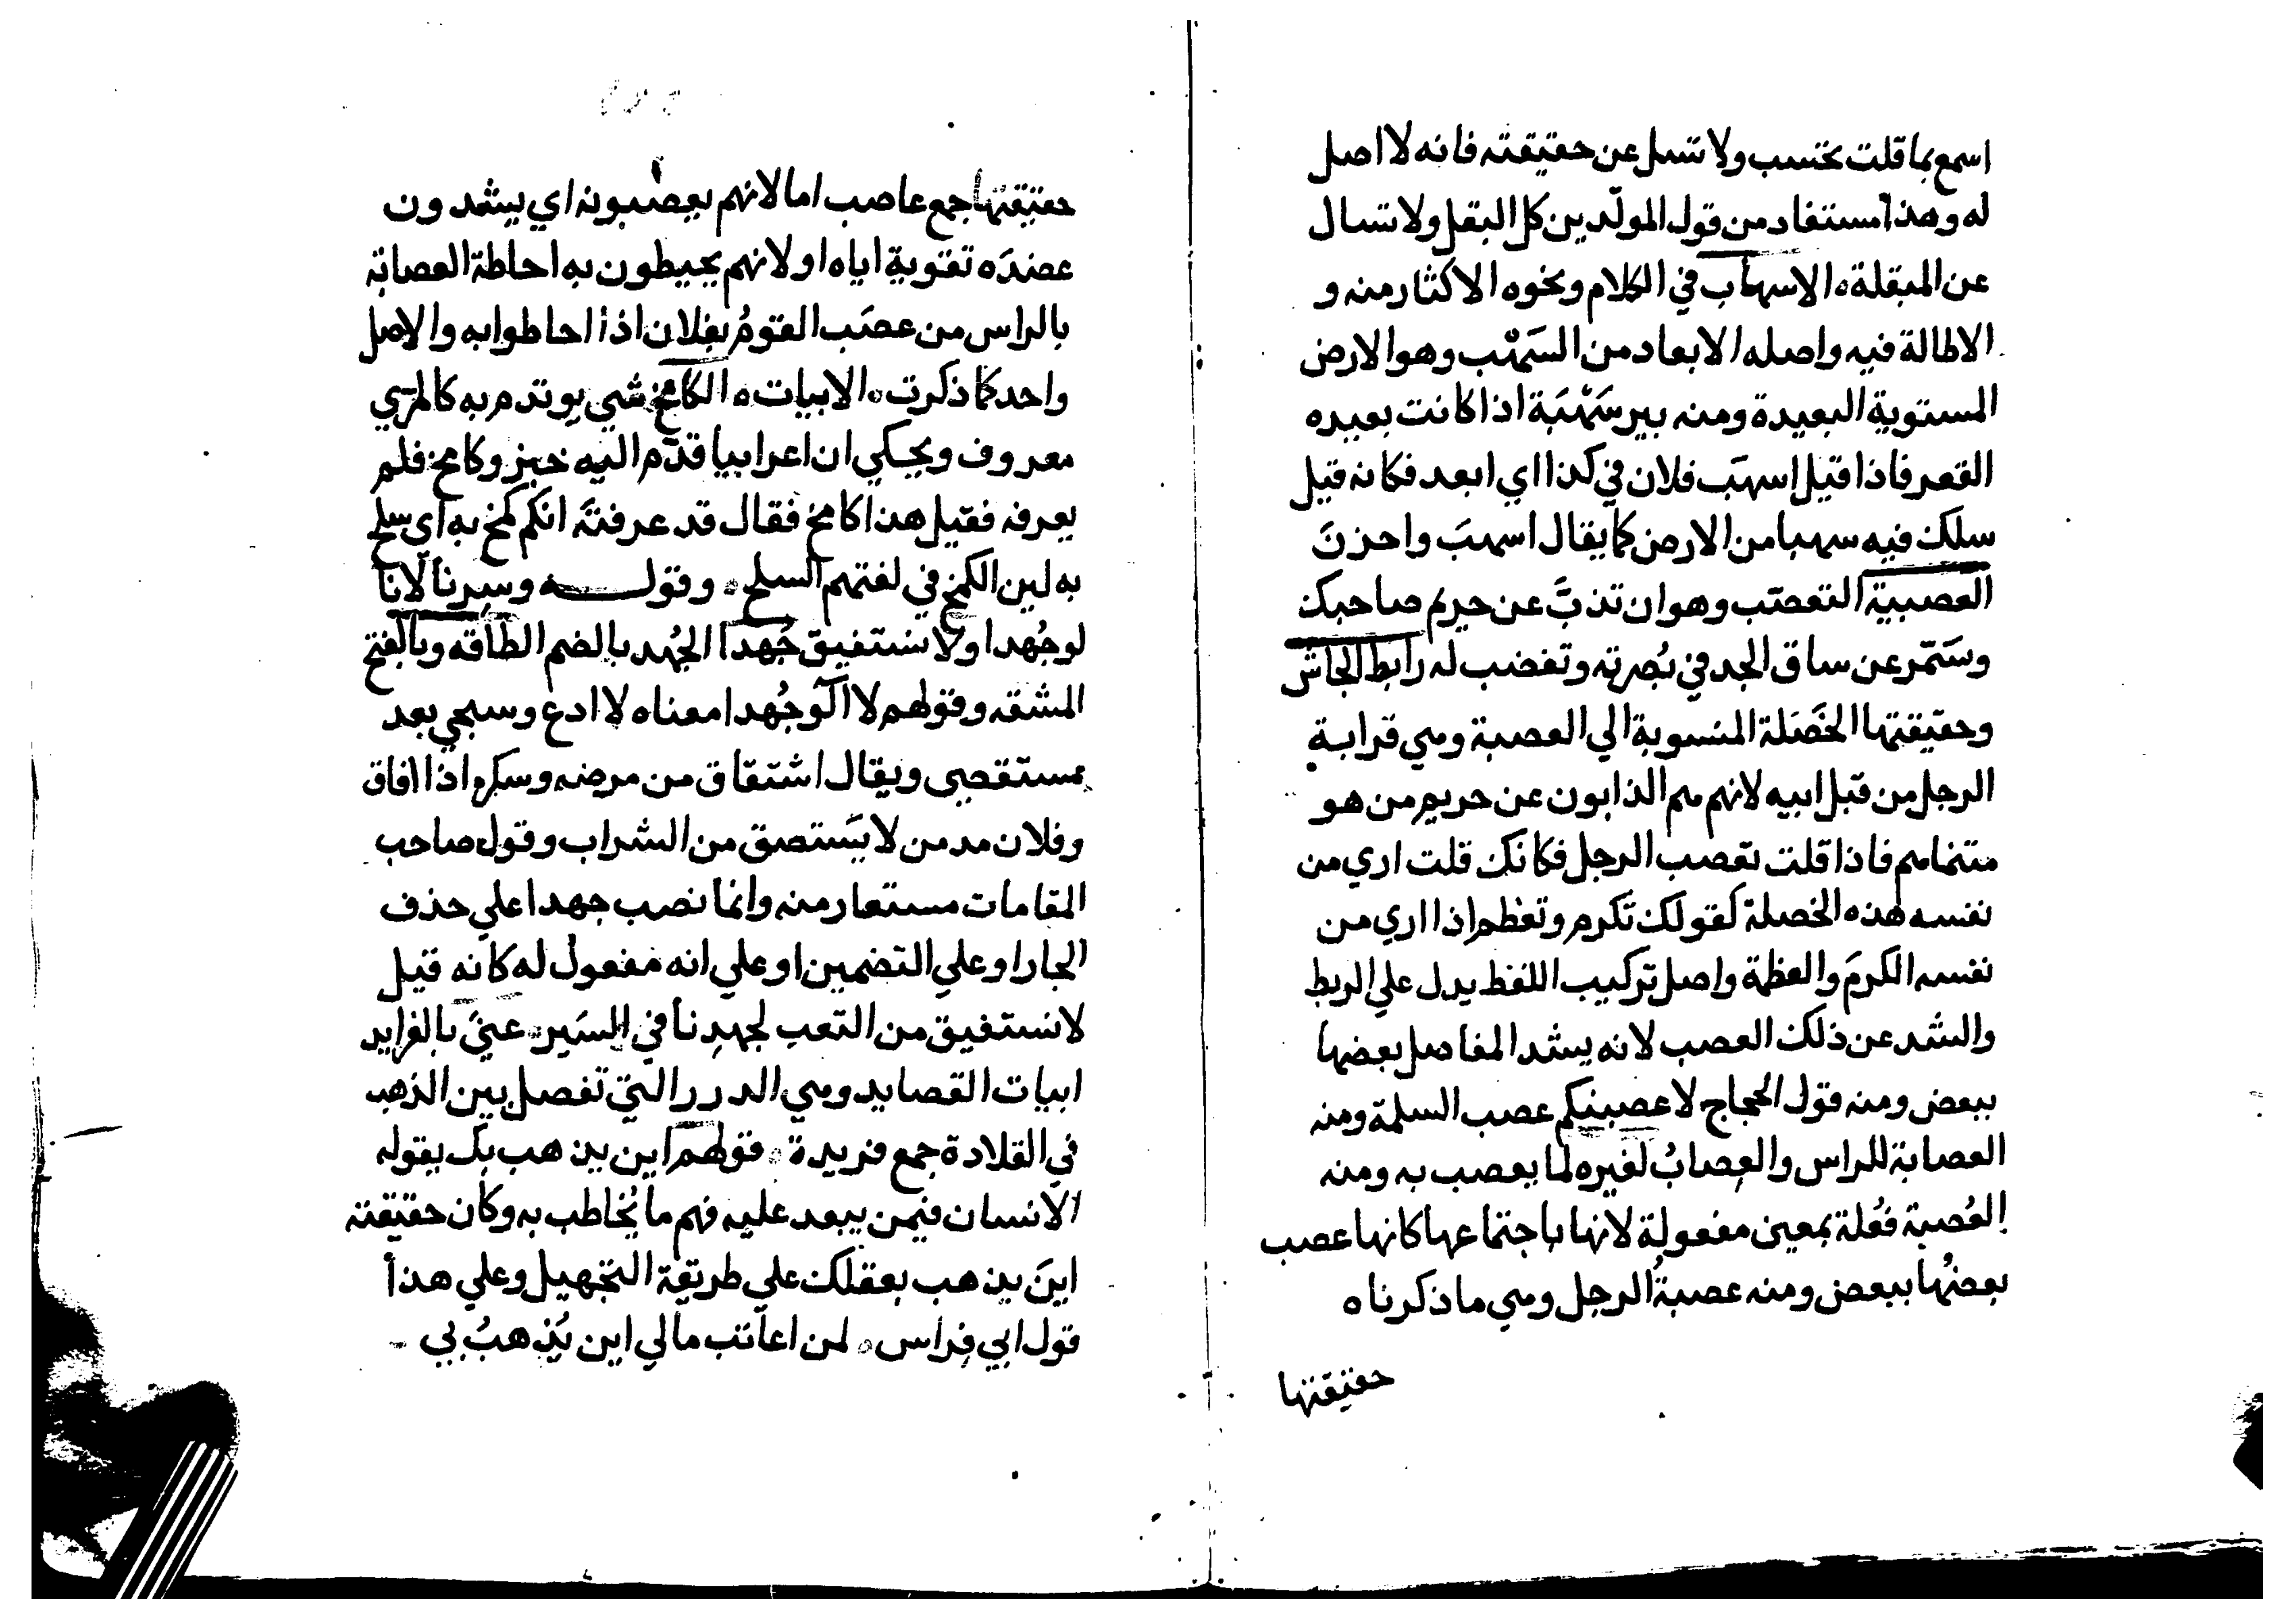 اسمع بما قلت تحتسب ولا تسل عن حقيقته فانه لا اصل
له وهذا مستفاد من قول المولّدين كل البقل ولا تسال
عن المبقلة ه الاسهاب في الكلام ونحوه الاكثار منه و
الاطالة فيه واصله الابعاد من السَهْب وهو الارض
المستوية البعيدة ومنه بير سَهْبَة اذا كانت بعيده
القعر فاذا قيل اسهَب فلان في كذا اي ابعد فكانه قيل
سلك فيه سهبا من الارض كما يقال اسهبَ واحزنَ
العصبية التعصّب وهو ان تذبَّ عن حريم صاحبك
وسَمّر عن ساق الجد في نُصرته وتغضب له رابط الجاش
وحقيقتها الخَصَلة المنسوبة الي العصبة وهي قرابة
الرجل من قبل ابيه لانهم هم الذابون عن حريم من هو
منتهاهم فاذا قلت تعصب الرجل فكانك قلت اري من
نفسه هذه الخصلة كقولك تكرم وتعظم اذا اري من
نفسه الكرمَ والعظمة واصل تركيب اللفظ يدل علي الربط
والشد عن ذلك العصب لانه يشد المفاصل بعضها
ببعض ومنه قول الحجاج لاعصبنكم عصب السلمة ومنه
العصابة للراس والعِصابُ لغيره لما يعصب به ومنه
العُصبة فُعْلة بمعني مفعولة لانها باجتماعها كانها عصب
بعضُها ببعض ومنه عصبةُ الرجل وهي ما ذكرناه
حقيقتها
حقيقتها جمع عاصب اما لانهم يعصبونه اي يشدون
عضدَه تقوية اياه او لانهم يحيطون به احاطة العصابة
بالراس من عصَب القومُ بفلان اذا احاطوا به والاصل
واحد كما ذكرت ه الابيات ه الكامخ شي يوتدم به كالمري
معروف ويحكي ان اعرابيا قدّم اليه خبز وكامخ فلم
يعرفه فقيل هذا كامخ فقال قد عرفته انكم كمخ به اي سلح
به لين الكمخ في لغتهم السلح ه وقوله وسِرنا لانا
لو جُهدا ولا نستفيق جُهدا الجُهد بالضم الطاقه وبالفتح
المشقه وقولهم لا آلُو جُهدا معناه لا ادع وسيجي بعد
مستقصى ويقال اشتقاق من مرضه وسكره اذا افاق
وفلان مدمن لا يَستصق من الشراب وقول صاحب
المقامات مستعار منه وانما نصب جهدا علي حذف
الجار او علي التضمين او علي انه مفعول له كانه قيل
لا نستفيق من التعب لجهدنا في السَير ه عنيَ بالفرايد
ابيات القصايد وهي الدرر التي تفصل بين الذهب
في القلادة جمع فريدة ه قولهم اين يذهب بك يقوله
الانسان فيمن يبعد عليه فهم ما يُخاطب به وكان حقيقته
اينَ يذهب بعقلك علي طريقة التجهيل وعلي هذا
قول ابي فِراس ه لمن اعاتب مالي اين يُذهبُ بي